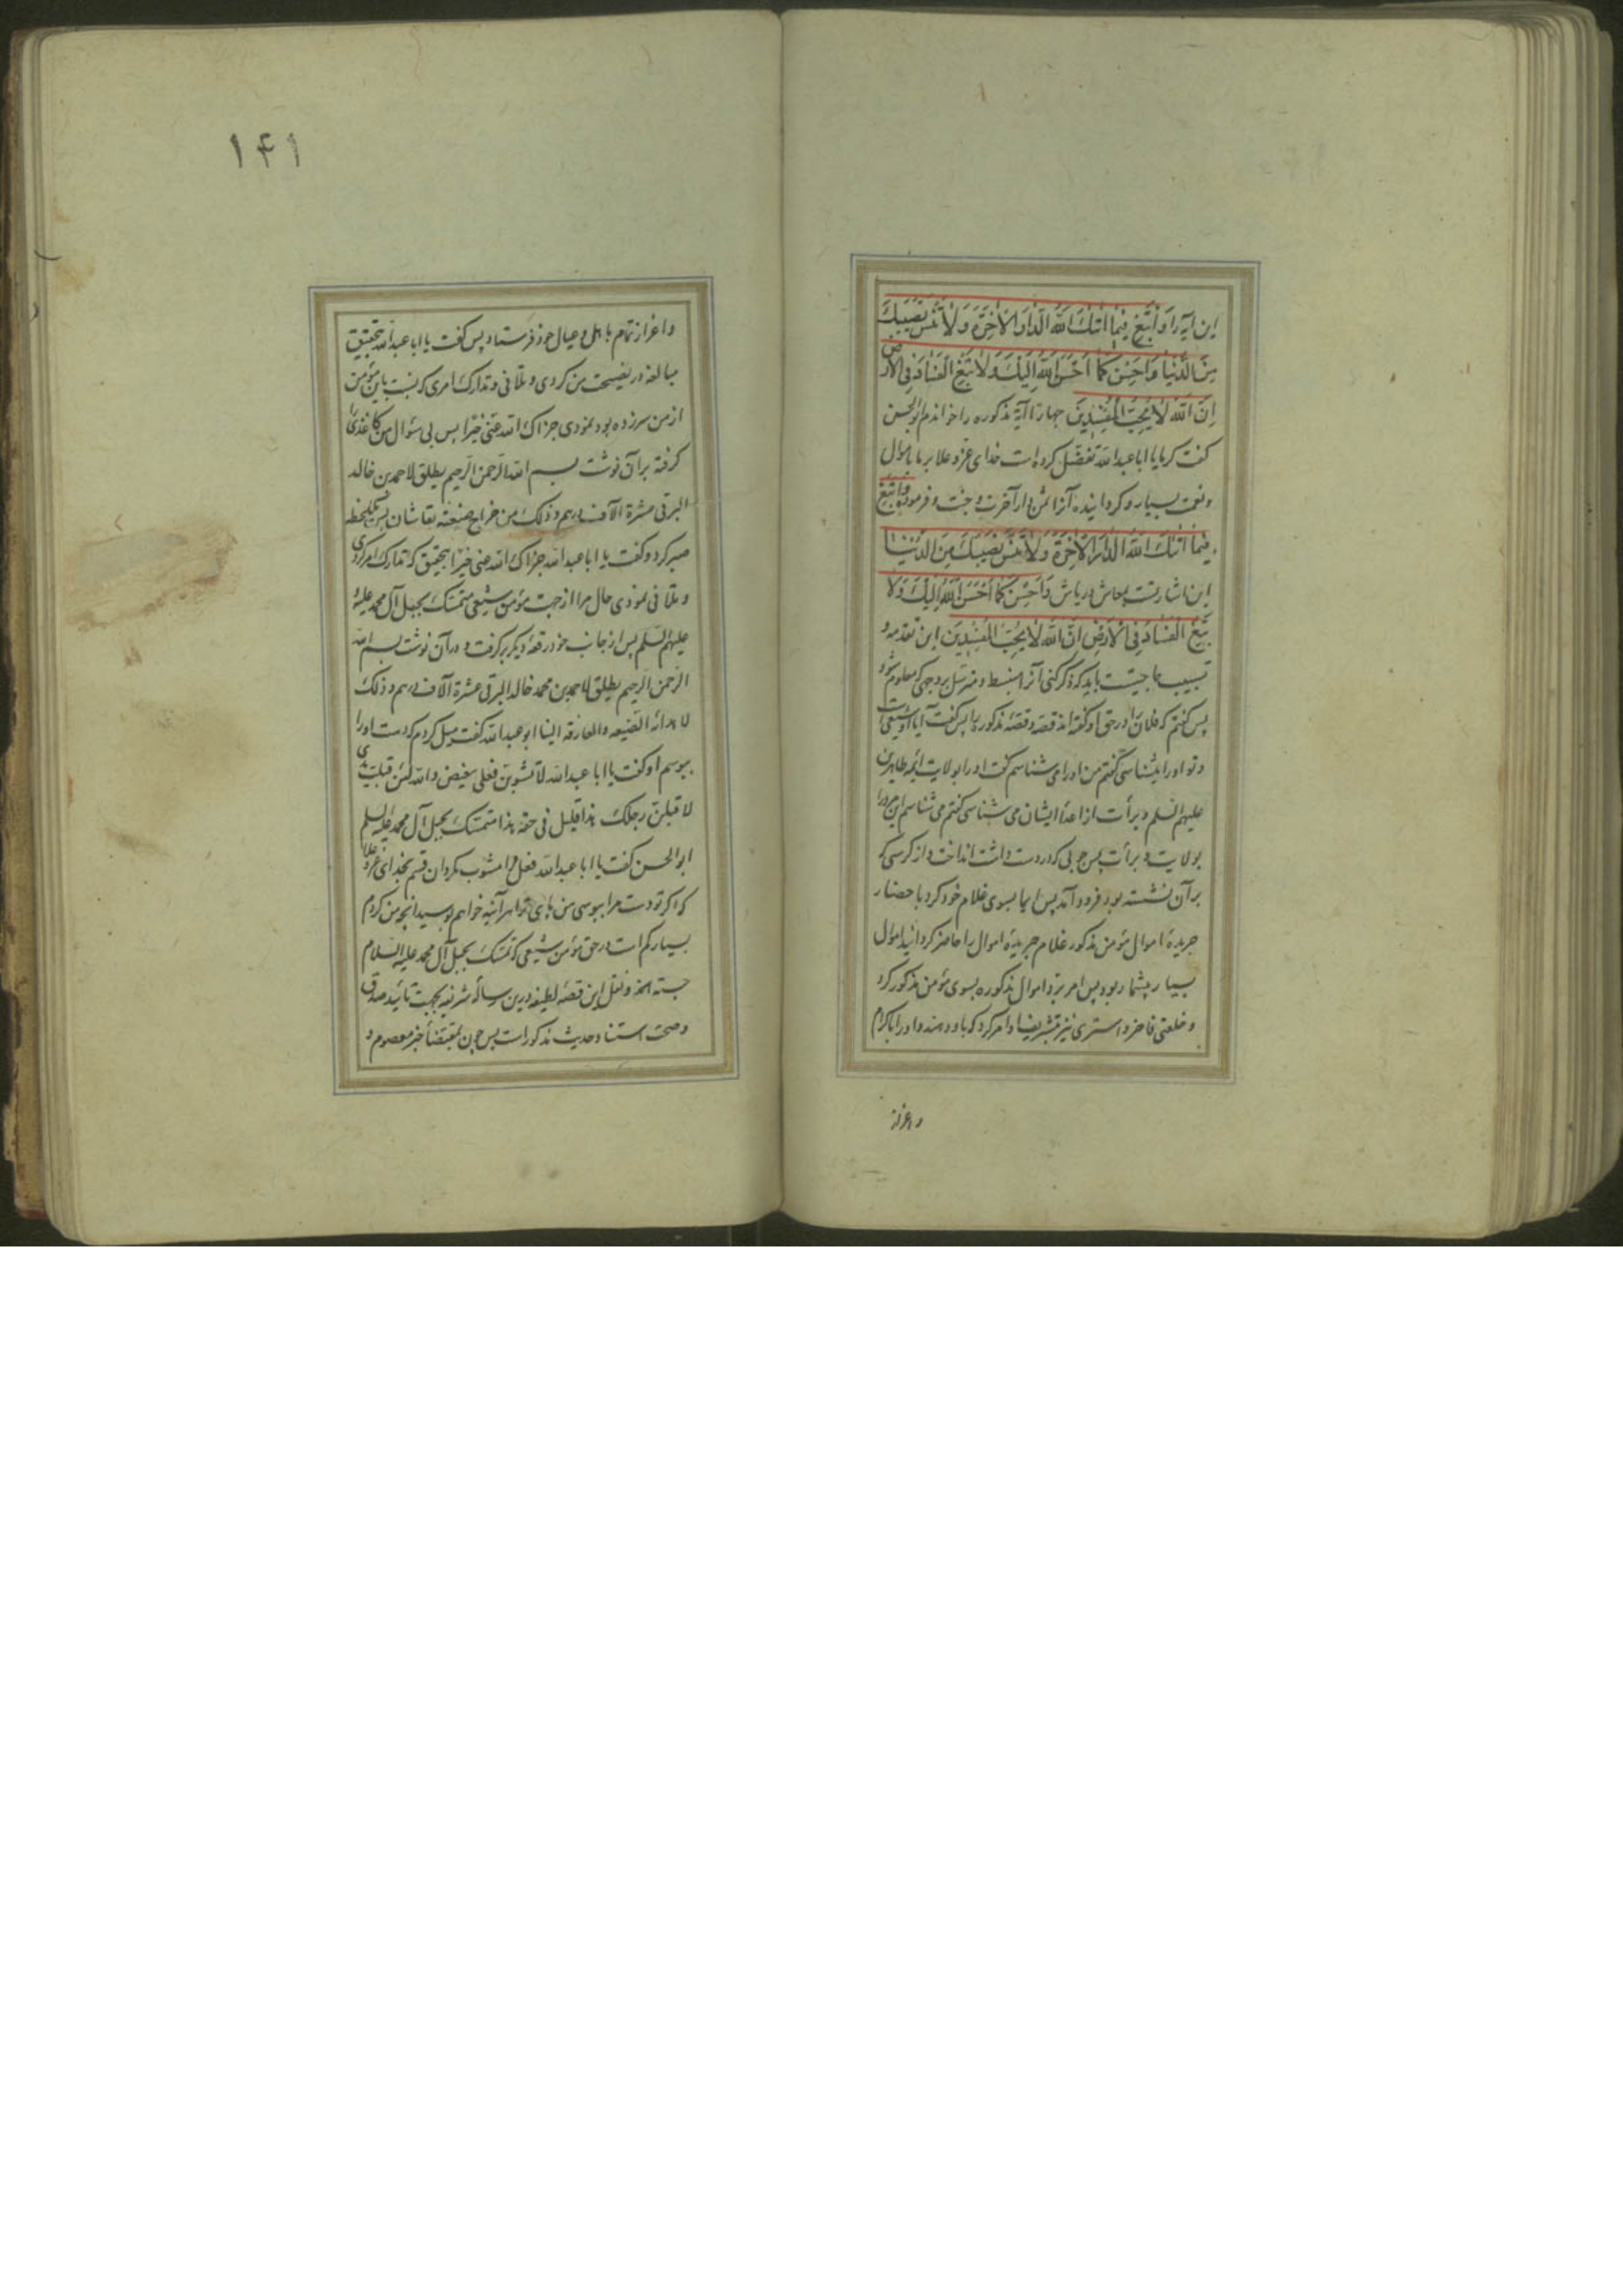 این آیه را وَابْتَغِ فِیمَا اٰتٰیکَ اللّٰهُ الدَّارَ الْاٰخِرَةَ وَلَا تَنْسَ نَصِیبَکَ
مِنَ الدُّنْیَا وَاَحْسِنْ کَمَا اَحْسَنَ اللّٰهُ اِلَیْکَ وَلَا تَبْغِ الْفَسَادَ فِی الْاَرْضِ
اِنَّ اللّٰهَ لَا یُحِبُّ الْمُفْسِدِینَ آیهٔ مذکوره را خواندم ابوالحسن
گفت یا ابا عبدالله تفضل کرده است خدای عز و علا بر ما باموال
و نعمت بسیار و گردانیده آنرا ثمن دار آخرت و جنت و فرموده وَابْتَغِ
فِیمَا اٰتٰیکَ اللّٰهُ الدَّارَ الْاٰخِرَةَ وَلَا تَنْسَ نَصِیبَکَ مِنَ الدُّنْیَا
این اشارتست بمعاش و ریاش وَاَحْسِنْ کَمَا اَحْسَنَ اللّٰهُ اِلَیْکَ وَلَا
تَبْغِ الْفَسَادَ فِی الْاَرْضِ اِنَّ اللّٰهَ لَا یُحِبُّ الْمُفْسِدِینَ این مقدمه و
حاجتیست باید که ذکر کنی آنرا منبسط و مسترسل بر وجهی که معلوم شود
پس گفتم که فلان را در حق او گفته‌اند قصه و قصهٔ مذکور را پس گفت آیا او شیعی است
و تو او را میشناسی گفتم من او را می شناسم گفت او را بولایت ائمه طاهرین
علیهم السلم و برأت از اعداء ایشان می شناسی گفتم می شناسم این مرد را
بولایت و برأت پس چوبی که در دست داشت انداخت و از کرسی که
بر آن نشسته بود فرود آمد پس ایما بسوی غلام خود کرد باحضار
جریدهٔ اموال مؤمن مذکور غلام جریدهٔ اموال را حاضر گردانید اموال
بسیار بیشمار بود پس امر برد اموال مذکوره بسوی مؤمن مذکور کرد
و خلعتی فاخر و استری نیز تشریفا و امر کرد که باو دهند و او را باکرام
واعزاز
۱۴۱
و اعزاز تمام باهل و عیال خود فرستاد پس گفت یا ابا عبدالله بتحقیق
مبالغه در نصیحت من کردی و تلافی و تدارک امری که نسبت باین مؤمن
از من سرزده بود نمودی جزاک الله عنی خیرا پس بی سؤال من کاغذی را
گرفته بر آن نوشت بسم الله الرحمن الرحیم یطلق لاحمد بن خالد
البرقی عشرة الآف درهم و ذلک من خراج ضیعته بقاشان پس یکلحظه
صبر کرد و گفت یا ابا عبدالله جزاک الله عنی خیرا بتحقیق که تدارک امر کردی
و تلافی نمودی حال مرا از جهت مؤمن شیعی متمسک بحبل آل محمد علیه و
علیهم السلم پس از جانب خود رقعهٔ دیگر برگرفت و در آن نوشت بسم الله
الرحمن الرحیم یطلق لاحمد بن محمد خالد البرقی عشرة الآف درهم و ذلک
لاهدائه الصنیعه والعارفه الینا ابوعبدالله گفت میل کردم که دست او را
ببوسم او گفت یا ابا عبدالله لا تشوبن فعلی والله لئن قبلت یدی
لاقبلن رجلک هذا قلیل فی حقه هذا متمسک بحبل آل محمد علیه السلم
ابوالحسن گفت یا ابا عبدالله فعل مرا مشوب مگردان قسم بخدای عز و علا
که اگر تو دست مرا ببوسی من پای ترا هرآینه خواهم بوسید آنچه من کردم
بسیار کم است در حق مؤمن شیعی که تمسک بحبل آل محمد علیه السلام
جسته الخ و نقل این قصهٔ لطیفه درین رسالهٔ شریفه بجهت تأیید صدق
و صحت اسناد حدیث مذکور است پس چون بمقتضاء خبر معصوم و